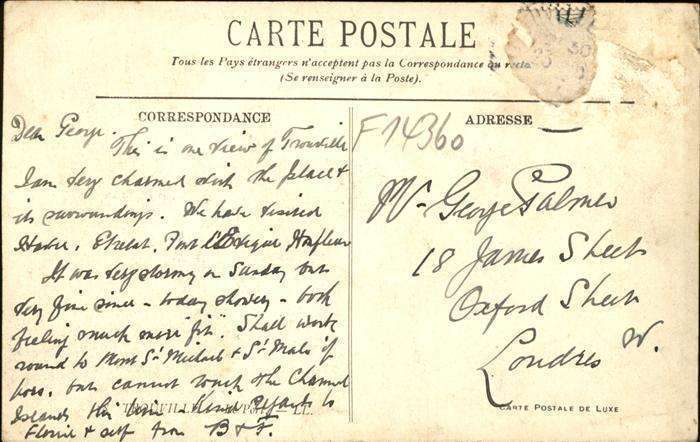 CARTE POSTALE
Tous les Pays étrangers n'acceptent pas la Correspondance au recto
(Se renseigner à la Poste).
CORRESPONDANCE
Dear George.
This is one view of Trouville
I am very charmed with the place &
its surroundings. We have visited
Havre, Etretat, Pont l'Evêque Honfleur
It was very stormy on Sunday but
very fine since - today showery - both
feeling much more fit". Shall work
round to Mont St Michel & St Malo if
poss. but cannot touch the Channel
Islands this time Kind regards to
Florrie & self from B & F.
F14360
ADRESSE
Mr George Palmer
18 James Street
Oxford Street
Londres W.
CARTE POSTALE DE LUXE